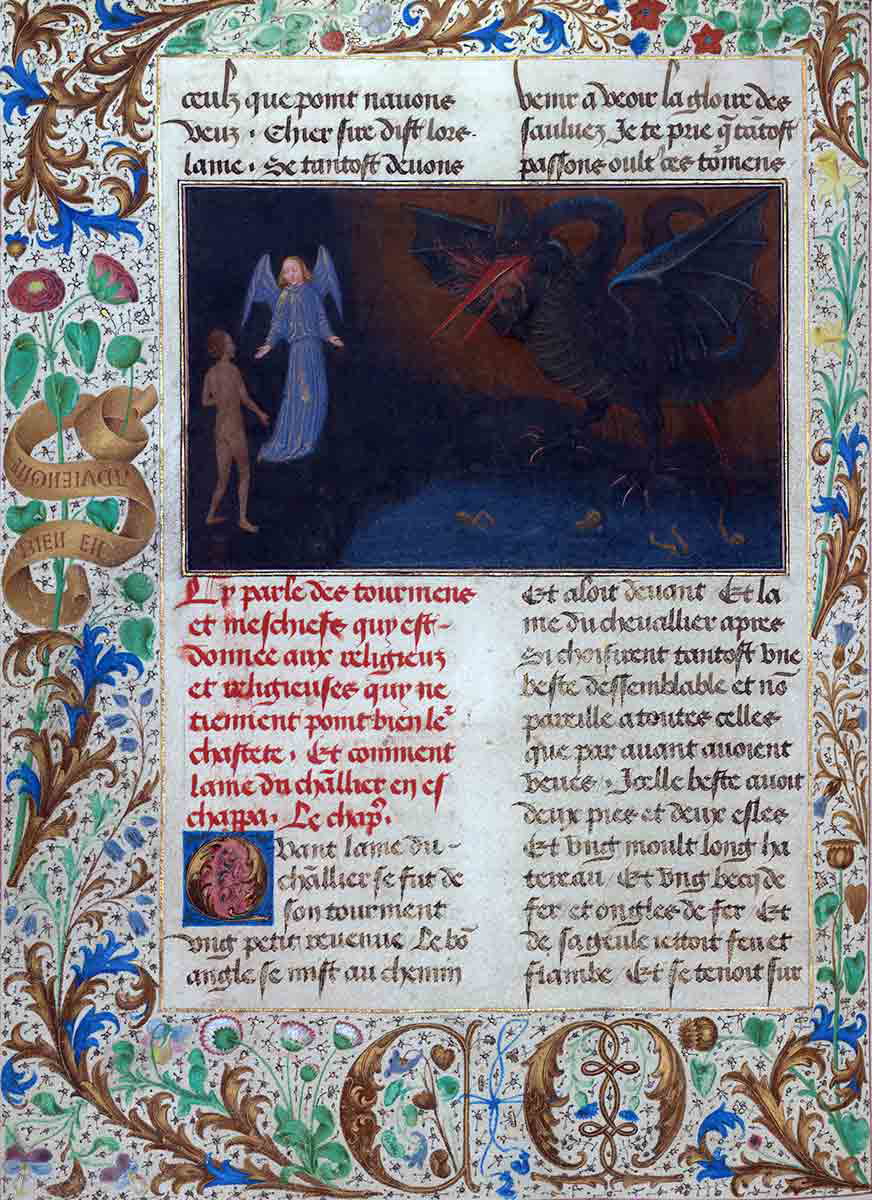 ceulz que point navons
veuz. Chier sire dist lors
lame. Se tantost devons
venir a veoir la gloire des
sauluez Je te prie q̃ tãtost
passons oult ces tõmens
Cy parle des tourmens
et meschiefs quy est
donnee aux religieux
et religieuses quy ne
tiennent point bien le²
chastete. Et comment
lame du chãllier en es
chappa. Le chap².
Quant lame du
chãllier se fut de
son tourment
vng petit revenue Le bõ
angle se mist au chemin
Et aloit devant Et la
me du chevallier apres
Si choisirent tantost vne
beste dessemblable et nõ
pareille a toutes celles
que par auant auoient
veues / Icelle beste avoit
deux pies et deux esles
Et vng moult long ha
tereau / Et vng becq de
fer et ongles de fer / Et
de sa geule iettoit feu et
flambe Et se tenoit sur
BIEN EN
ADVIENGNE
C M